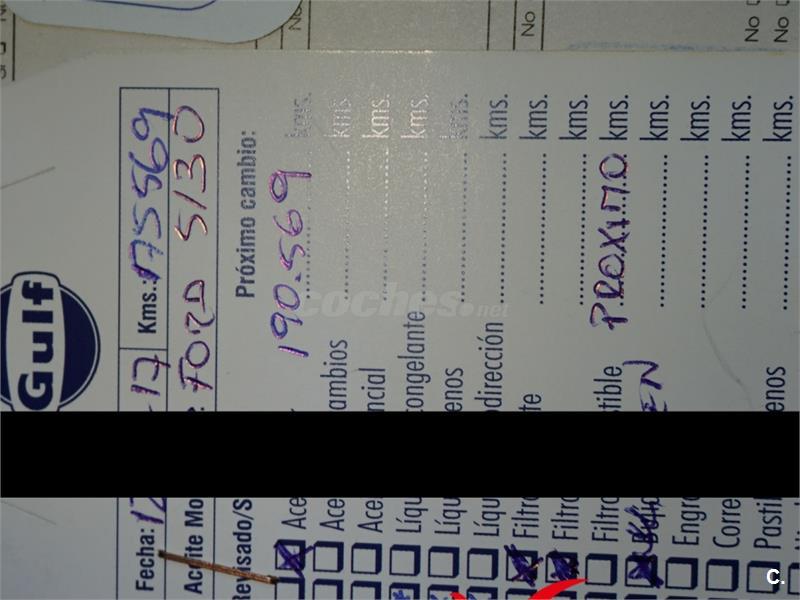 Gulf
Fecha: 12 -17 Kms.: 175569
Aceite Mo : FORD 5/30
Revisado/S Próximo cambio:
Ace 190.569 kms.
Ace ambios kms.
Ace ncial kms.
Líqu congelante kms.
Líqu enos kms.
Líqu odirección kms.
Filtro kms.
Filtro te kms.
Filtro stible PROXIMO kms.
EN kms.
Engra kms.
Corre kms.
Pastil enos kms.
No
No
No
No
coches.net
C.